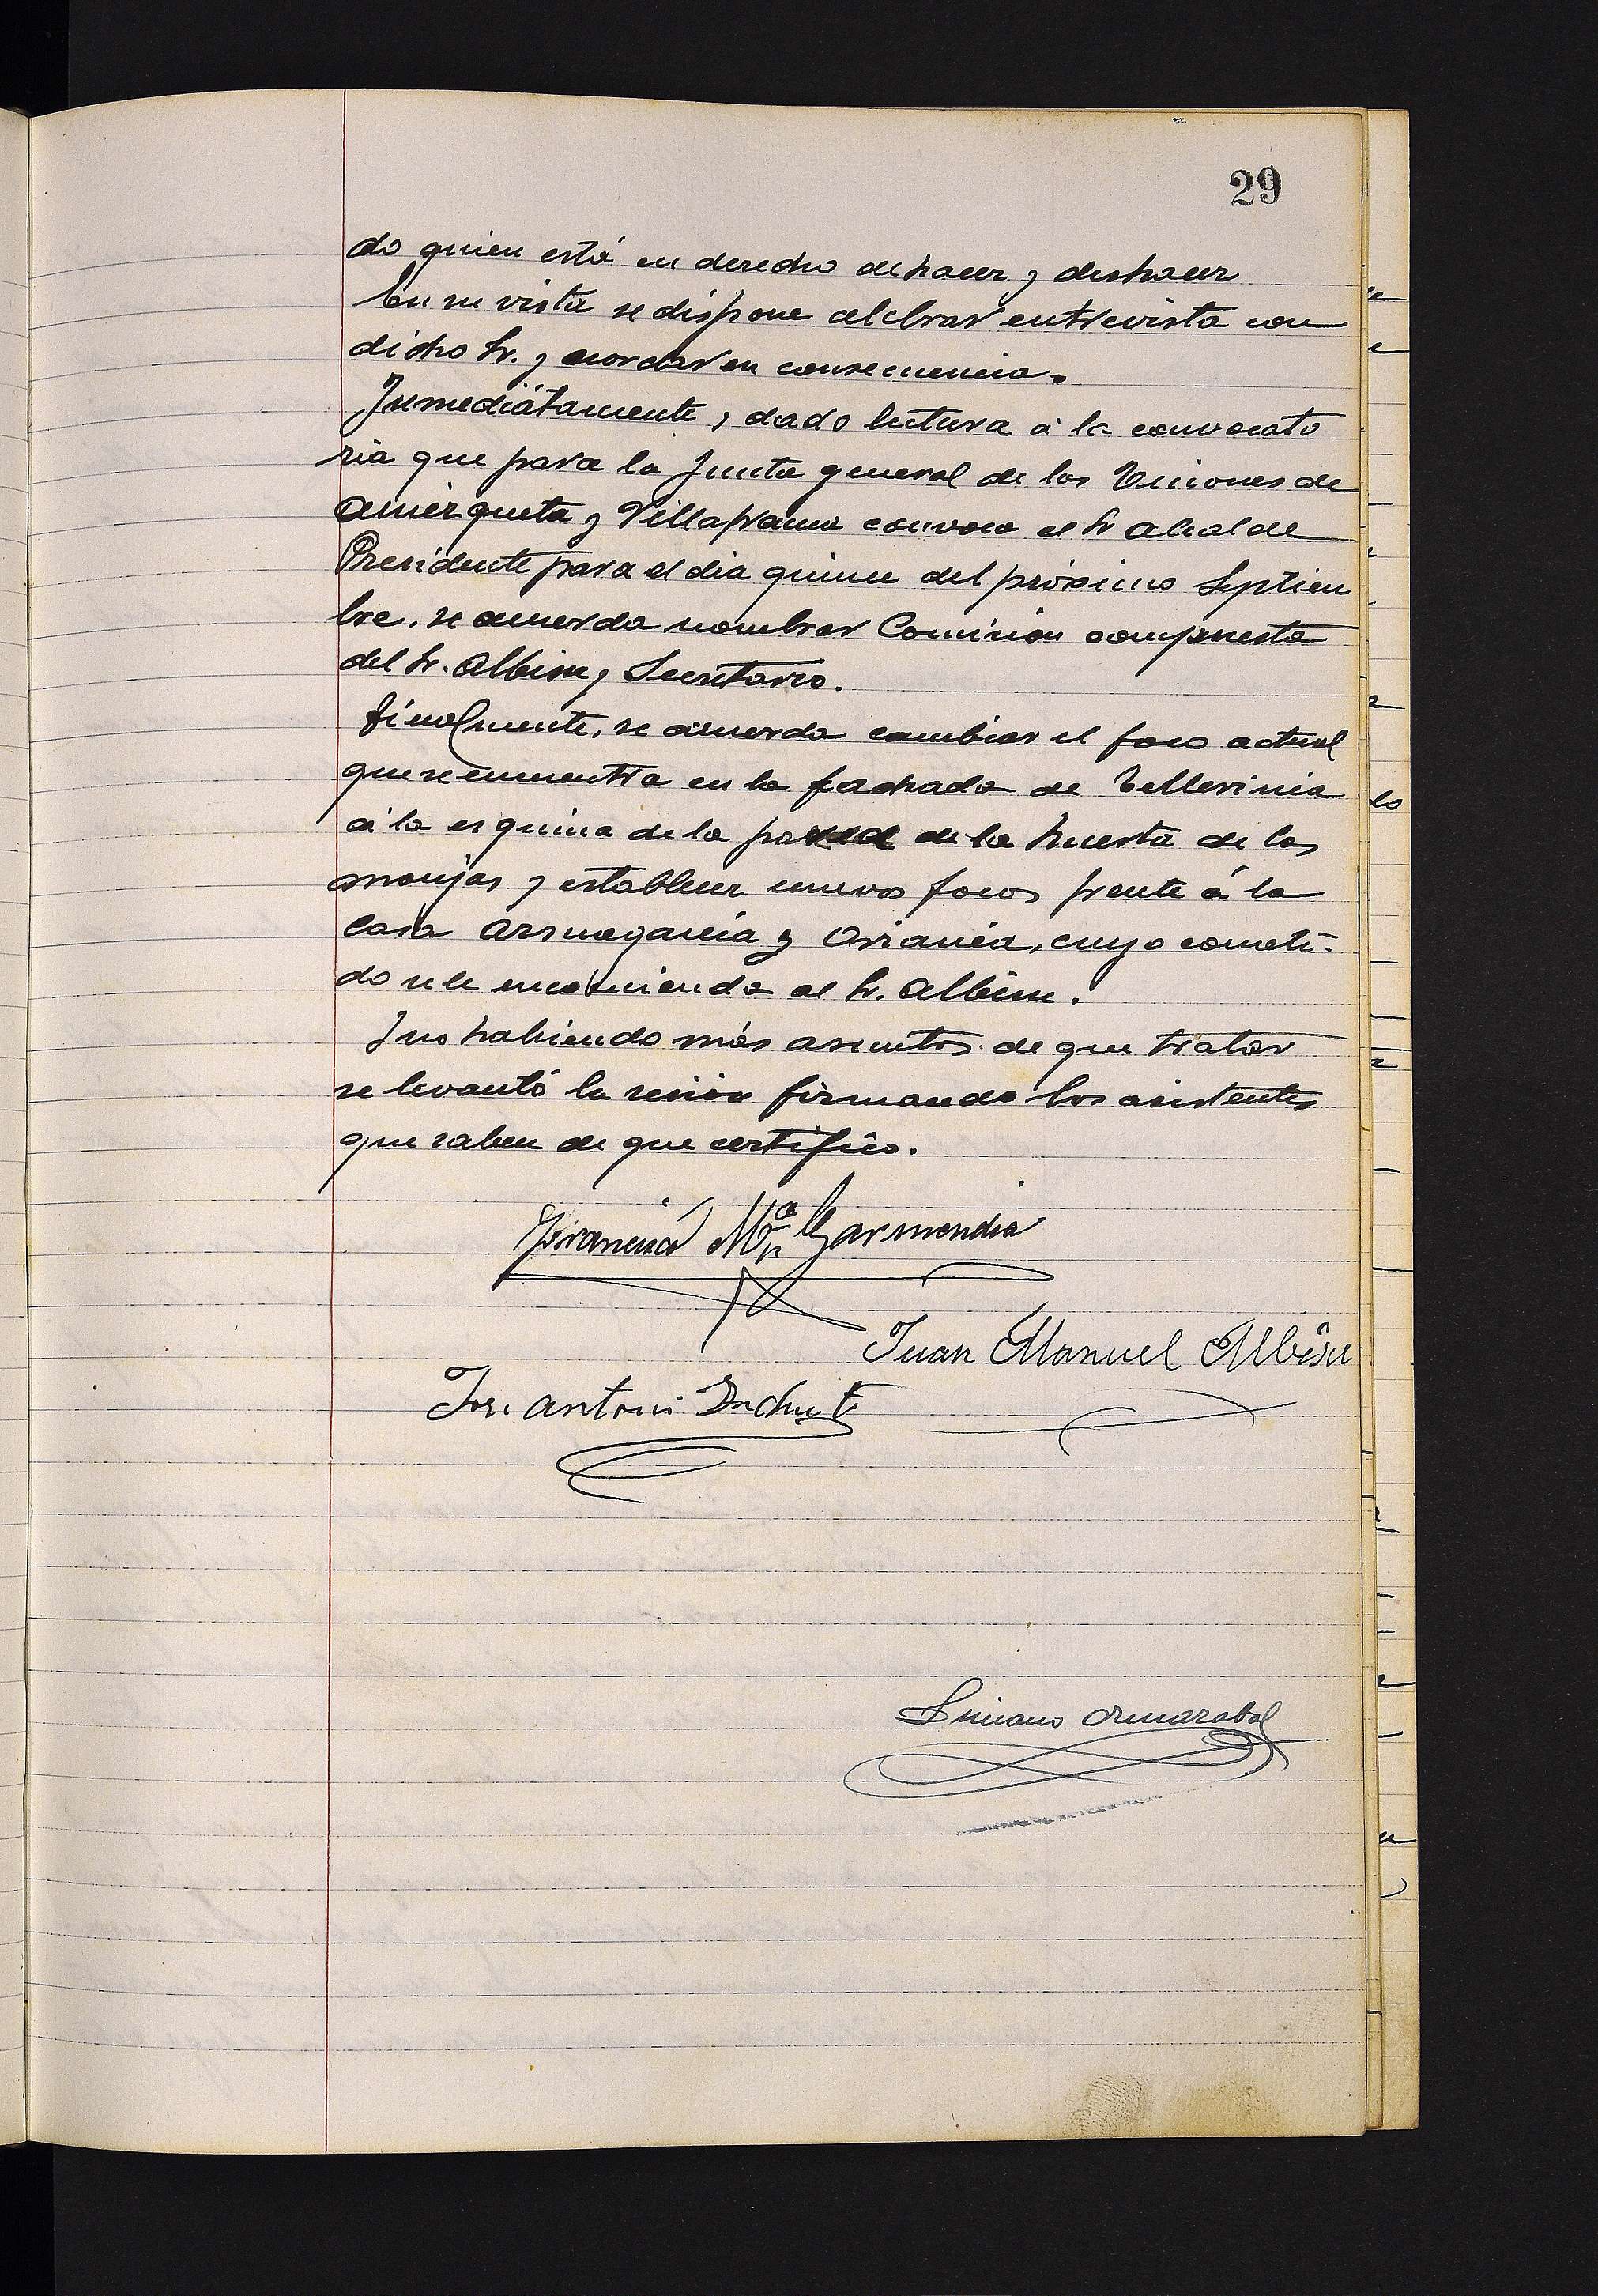 29
do quien está en derecho de hacer y deshacer
En su vista se dispone celebrar entrevista con
dicho Sr. y acordar en consecuencia.
Inmediátamente, dado lectura á la convocato
ria que para la Junta general de las Uniones de
Amézqueta y Villafranca convoca el Sr Alcalde
Presidente para el dia quince del próximo Septiem
bre, se acuerda nombrar Comisión compuesta
del Sr. Albisu y Secretario.
Finalmente, se acuerda cambiar el foco actual
que se encuentra en la fachada de Tellerinea
á la esquina de la pared de la huerta de las
monjas y establecer nuevos focos frente á la
casa y cuyo cometi-
do se le encomienda al Sr. Albisu.
Y no habiendo más asuntos de que tratar
se levantó la sesión firmando los asistentes
que saben de que certifico.
Francisco Mª Garmendia
Juan Manuel Albisu
José Antonio
Ormazabal